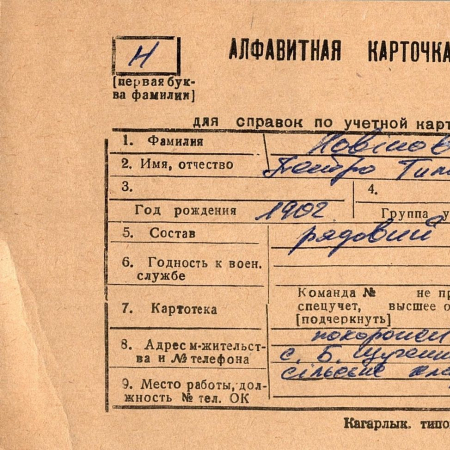 Н
АЛФАВИТНАЯ КАРТОЧКА
[первая бук-
ва фамилии]
для справок по учетной карт
1. Фамилия
2. Имя, отчество Петро
3. 4.
Год рождения 1902 Группа у
5. Состав рядовий
6. Годность к воен.
службе
Команда № не пр
7. Картотека спецучет, высшее о
[подчеркнуть]
8. Адрес м-жительст- похоронен
ва и № телефона с. Б.
9. Место работы, дол- сільське
жность № тел. ОК
Кагарлык. типо